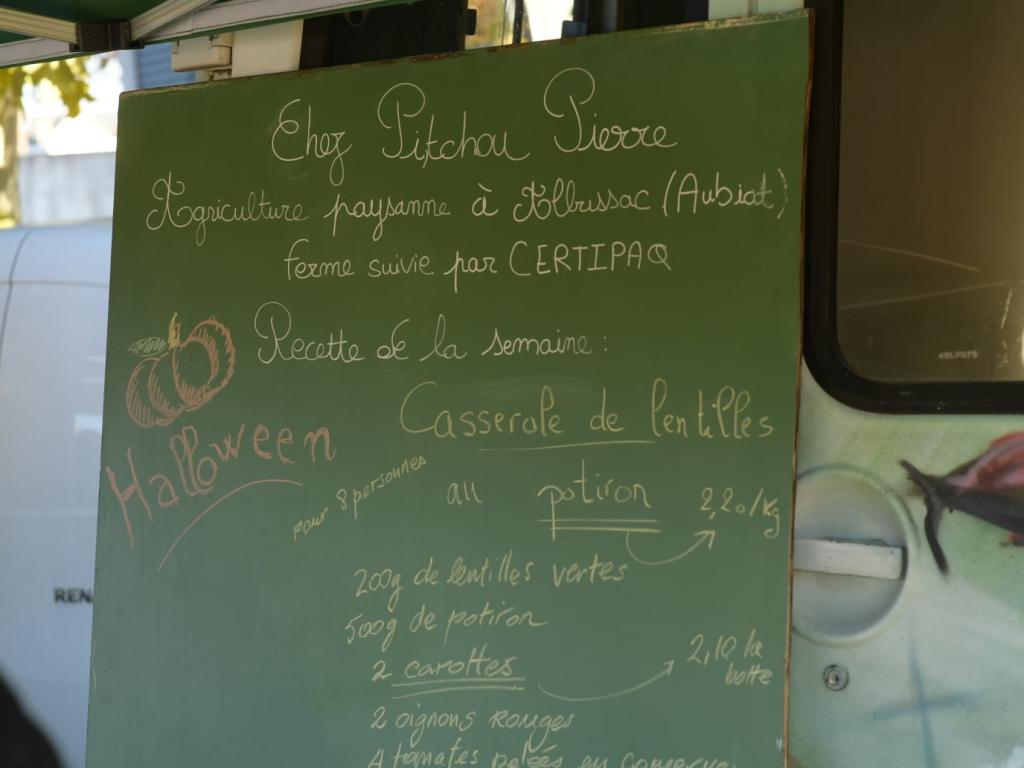 Chez Pitchou Pierre
Agriculture paysanne à Albussac (Aubiat)
ferme suivie par CERTIPAQ
Recette de la semaine :
Halloween
Casserole de lentilles
pour 8 personnes
au potiron 2,20/kg
200g de lentilles vertes
500g de potiron
2 carottes 2,10 la
botte
2 oignons rouges
4 tomates pelées en conserve
REN
49LP075